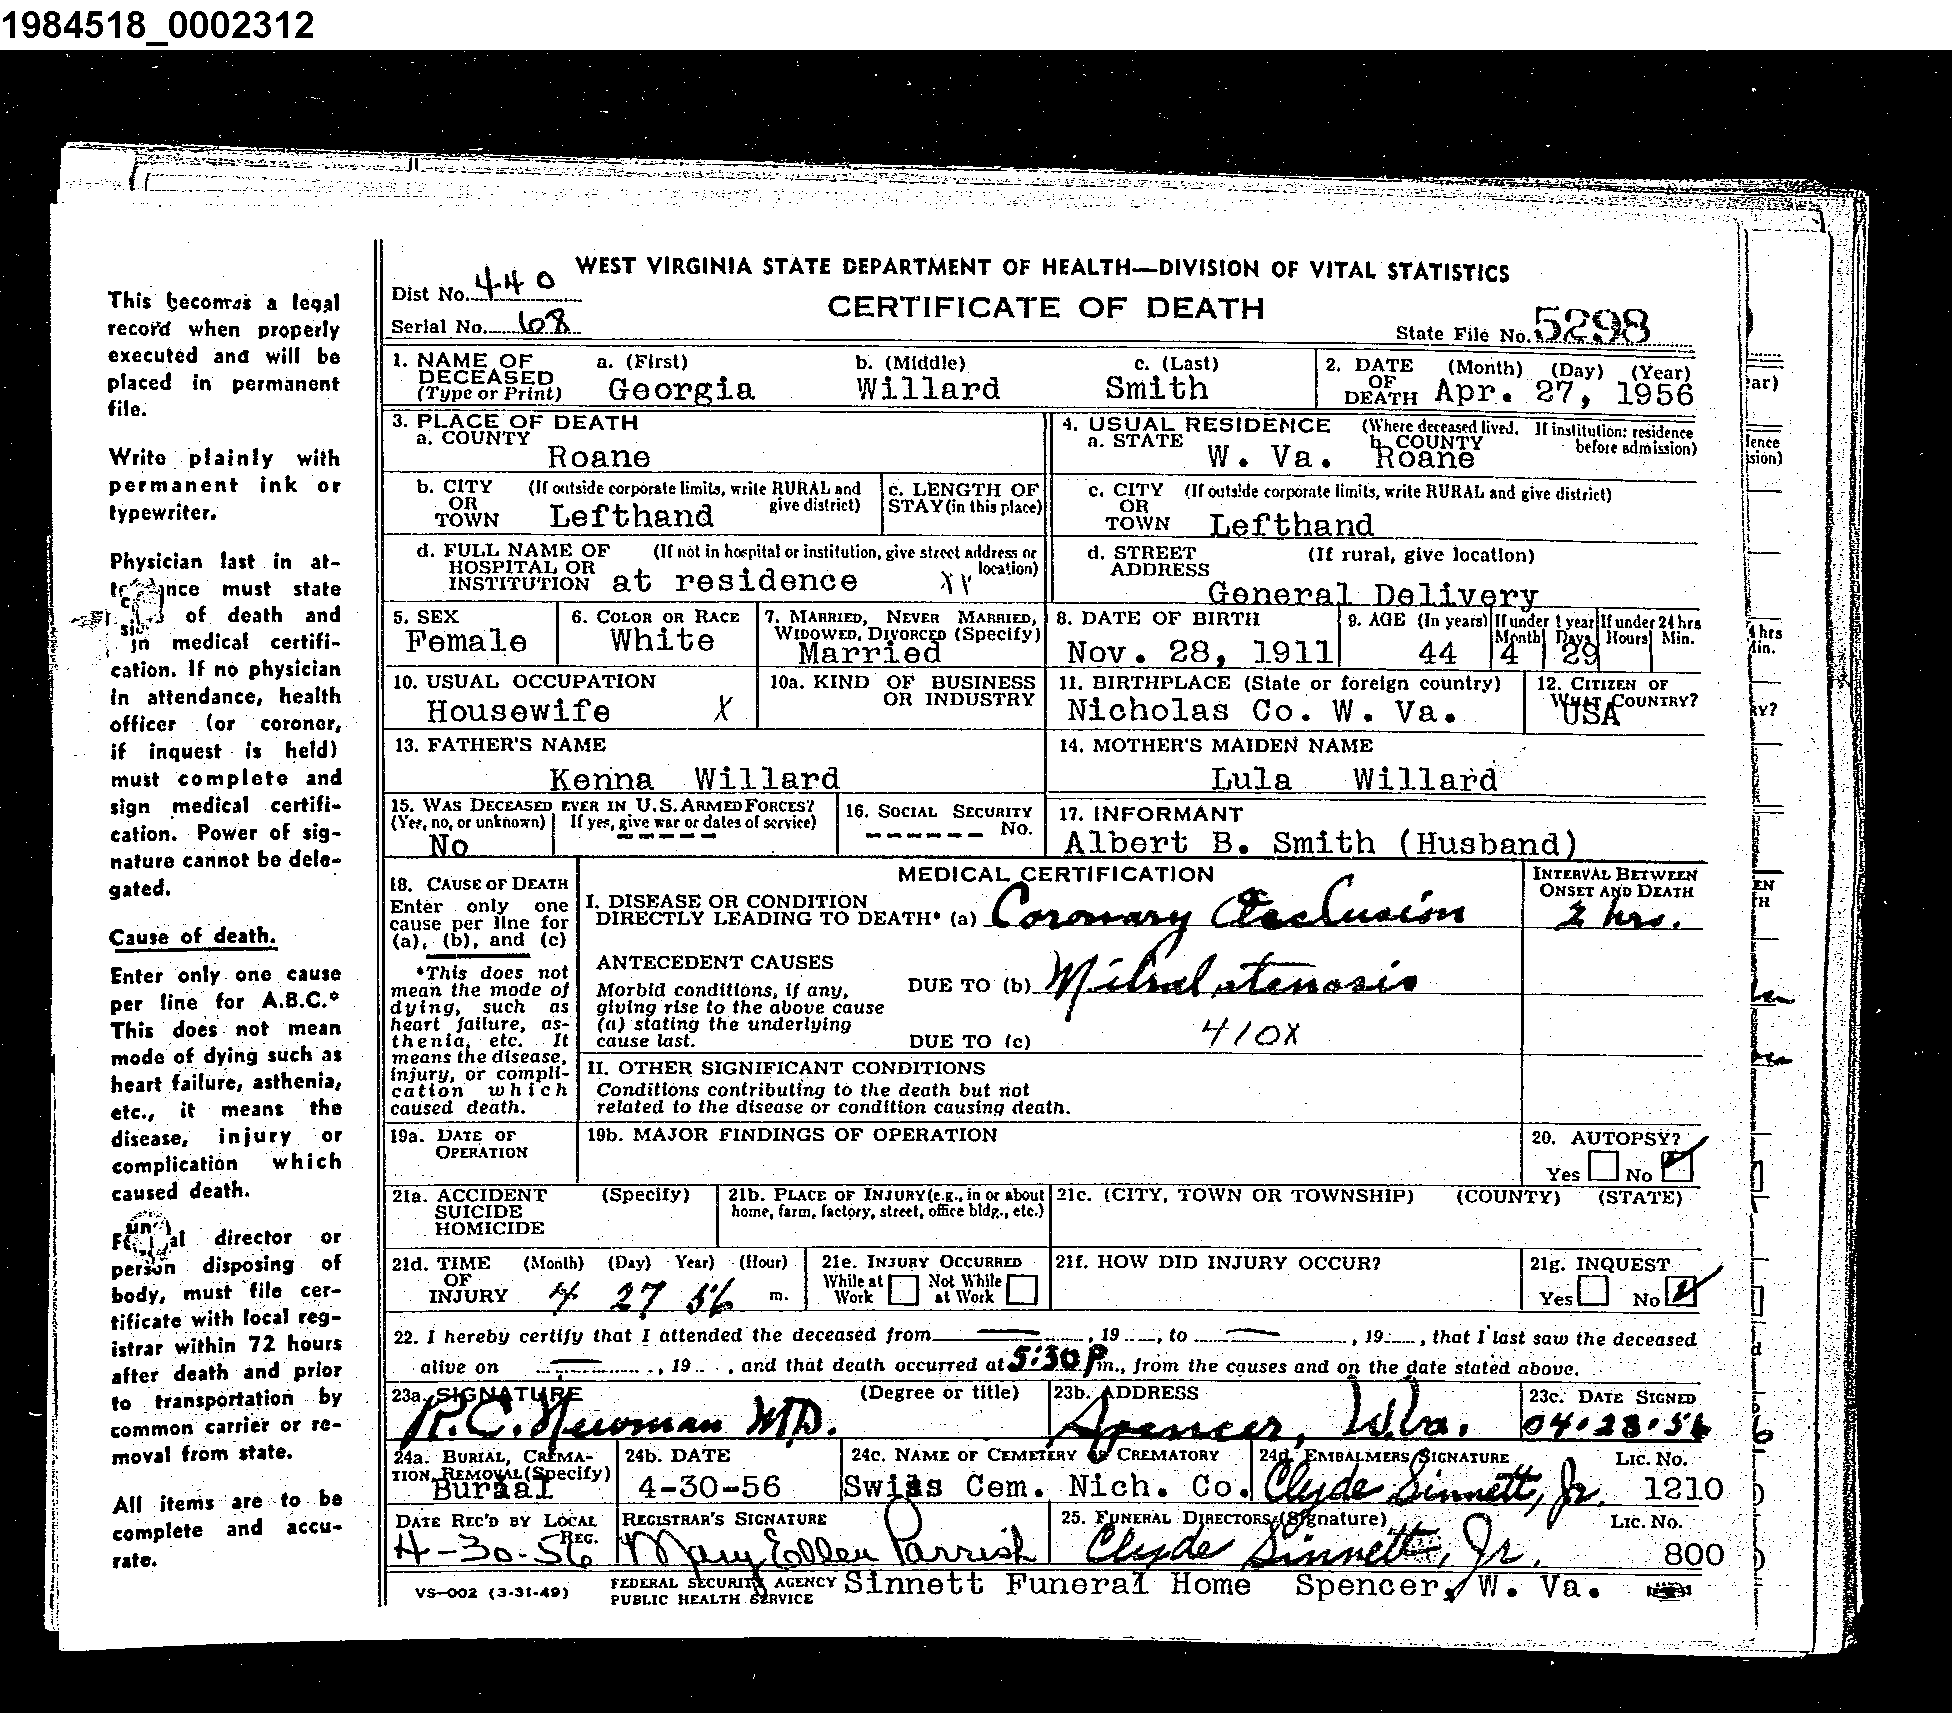 1984518_0002312
This becomes a legal
record when properly
executed and will be
placed in permanent
file.
Write plainly with
permanent ink or
typewriter.
Physician last in at-
must state
of death and
medical certifi-
cation. If no physician
in attendance, health
officer (or coroner,
if inquest is held)
must complete and
sign medical certifi-
cation. Power of sig-
nature cannot be dele-
gated.
Cause of death.
Enter only one cause
per line for A.B.C.*
This does not mean
mode of dying such as
heart failure, asthenia,
etc., it means the
disease, injury or
complication which
caused death.
director or
person disposing of
body, must file cer-
tificate with local reg-
istrar within 72 hours
after death and prior
to transportation by
common carrier or re-
moval from state.
All items are to be
complete and accu-
rate.
WEST VIRGINIA STATE DEPARTMENT OF HEALTH—DIVISION OF VITAL STATISTICS
Dist No. 440
CERTIFICATE OF DEATH
Serial No. 68
State File No. 5298
1. NAME OF DECEASED (Type or Print) a. (First) b. (Middle) c. (Last)
Georgia Willard Smith
2. DATE OF DEATH (Month) (Day) (Year)
Apr. 27, 1956
3. PLACE OF DEATH
a. COUNTY
Roane
4. USUAL RESIDENCE (Where deceased lived. If institution: residence before admission)
a. STATE W. Va. b. COUNTY Roane
b. CITY OR TOWN (If outside corporate limits, write RURAL and give district)
Lefthand
c. LENGTH OF STAY (in this place)
c. CITY OR TOWN (If outside corporate limits, write RURAL and give district)
Lefthand
d. FULL NAME OF HOSPITAL OR INSTITUTION (If not in hospital or institution, give street address or location)
at residence
d. STREET ADDRESS (If rural, give location)
General Delivery
5. SEX
Female
6. COLOR OR RACE
White
7. MARRIED, NEVER MARRIED, WIDOWED, DIVORCED (Specify)
Married
8. DATE OF BIRTH
Nov. 28, 1911
9. AGE (In years) If under 1 year If under 24 hrs
Month Days Hours Min.
44 4 29
10. USUAL OCCUPATION
Housewife X
10a. KIND OF BUSINESS OR INDUSTRY
11. BIRTHPLACE (State or foreign country)
Nicholas Co. W. Va.
12. CITIZEN OF WHAT COUNTRY?
USA
13. FATHER'S NAME
Kenna Willard
14. MOTHER'S MAIDEN NAME
Lula Willard
15. WAS DECEASED EVER IN U.S. ARMED FORCES?
(Yes, no, or unknown) If yes, give war or dates of service)
No ------
16. SOCIAL SECURITY No.
------
17. INFORMANT
Albert B. Smith (Husband)
MEDICAL CERTIFICATION
INTERVAL BETWEEN ONSET AND DEATH
18. CAUSE OF DEATH
Enter only one
cause per line for
(a), (b), and (c)
*This does not
mean the mode of
dying, such as
heart failure, as-
thenia, etc. It
means the disease,
injury, or compli-
cation which
caused death.
I. DISEASE OR CONDITION
DIRECTLY LEADING TO DEATH* (a) Coronary Occlusion 2 hrs.
ANTECEDENT CAUSES
Morbid conditions, if any,
giving rise to the above cause
(a) stating the underlying
cause last.
DUE TO (b) Mitral stenosis
410X
DUE TO (c)
II. OTHER SIGNIFICANT CONDITIONS
Conditions contributing to the death but not
related to the disease or condition causing death.
19a. DATE OF OPERATION
19b. MAJOR FINDINGS OF OPERATION
20. AUTOPSY?
Yes No
21a. ACCIDENT SUICIDE HOMICIDE (Specify)
21b. PLACE OF INJURY (e.g., in or about home, farm, factory, street, office bldg., etc.)
21c. (CITY, TOWN OR TOWNSHIP) (COUNTY) (STATE)
21d. TIME OF INJURY (Month) (Day) Year) (Hour)
4 27 56 m.
21e. INJURY OCCURRED
While at Work Not While at Work
21f. HOW DID INJURY OCCUR?
21g. INQUEST
Yes No
22. I hereby certify that I attended the deceased from , 19 , to , 19 , that I last saw the deceased
alive on , 19 , and that death occurred at 5:30 P m., from the causes and on the date stated above.
23a. SIGNATURE (Degree or title)
R.C. Newman MD.
23b. ADDRESS
Spencer, W.Va.
23c. DATE SIGNED
04-28-56
24a. BURIAL, CREMATION, REMOVAL (Specify)
Burial
24b. DATE
4-30-56
24c. NAME OF CEMETERY OR CREMATORY
Swiss Cem. Nich. Co.
24d. EMBALMERS SIGNATURE Lic. No.
Clyde Sinnett, Jr. 1210
DATE REC'D BY LOCAL REG.
4-30-56
REGISTRAR'S SIGNATURE
Mary Ellen Parrish
25. FUNERAL DIRECTORS (Signature) Lic. No.
Clyde Sinnett, Jr. 800
VS-002 (3-31-49)
FEDERAL SECURITY AGENCY
PUBLIC HEALTH SERVICE
Sinnett Funeral Home Spencer, W. Va.